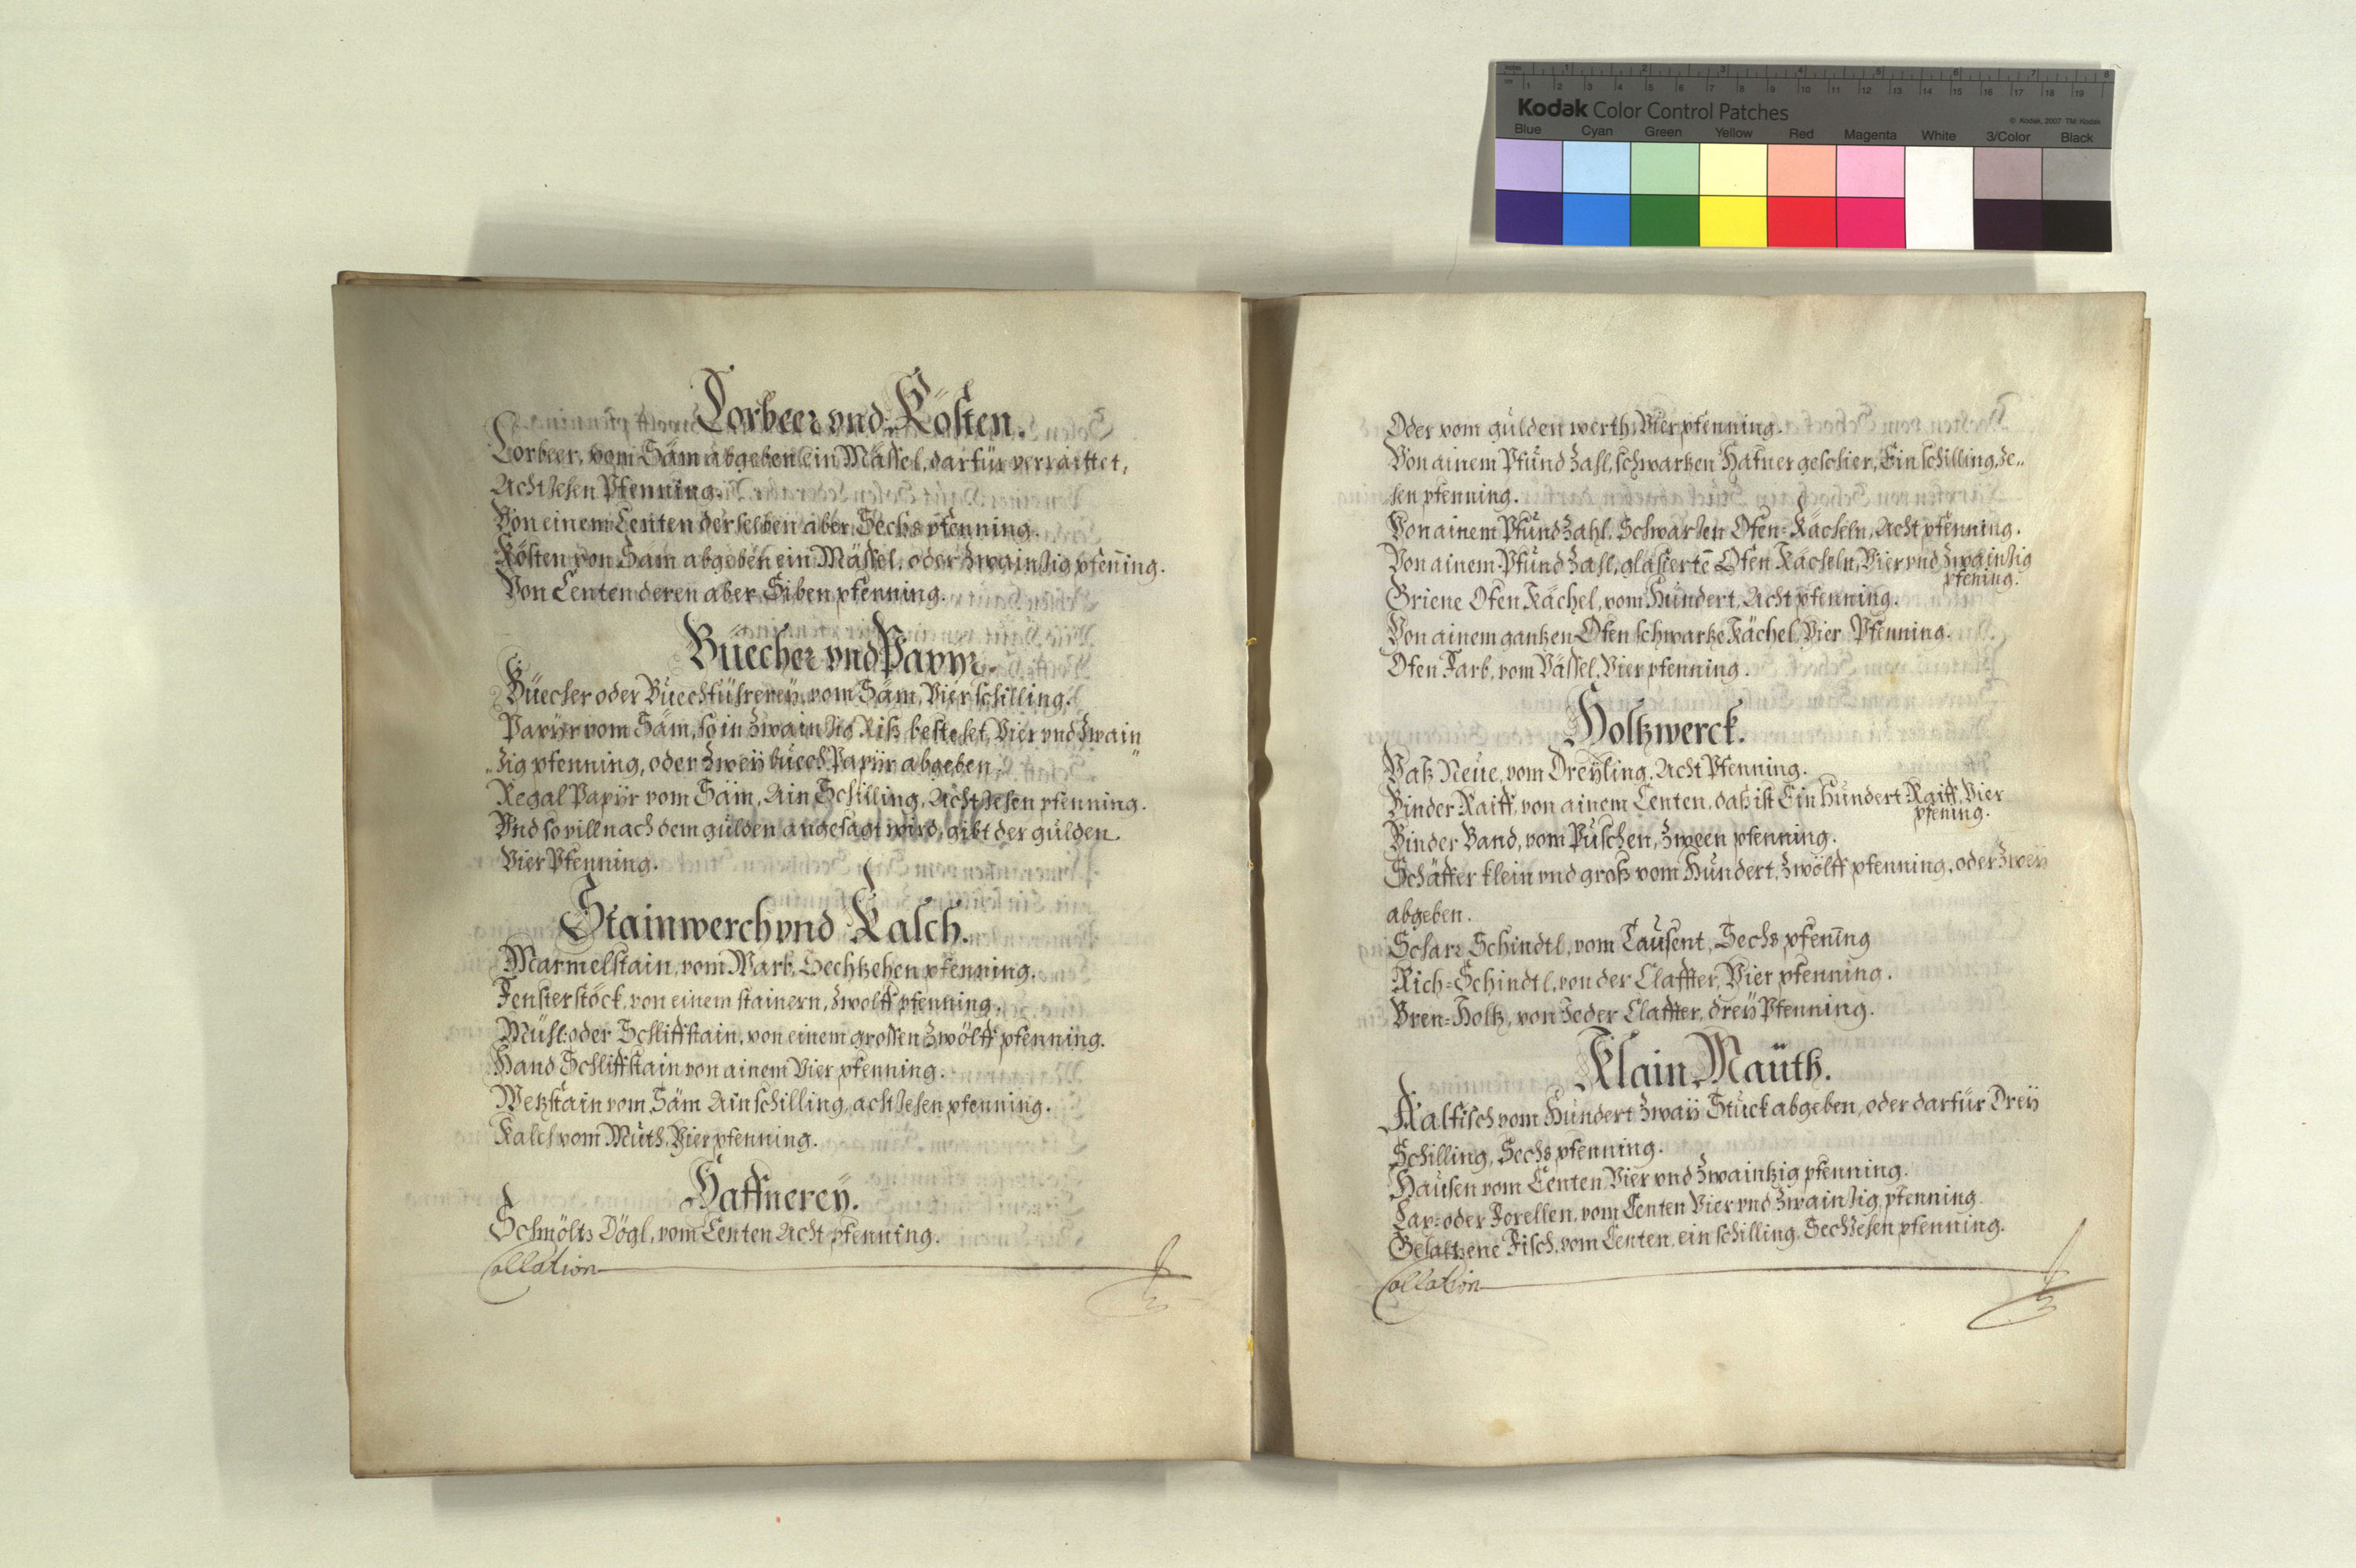 Lorbeer vnd Kösten.
Lorbeer, vom Säm abgeben ein Mässel, darfür verraittet,
Achtzehen Pfenning.
Von einem Centen derselben aber Sechs pfenning.
Kösten von Säm abgeben ein Mässel, oder Zwaintzig pfeñing.
Von Centen deren aber Siben pfenning.
Büecher vnd Papyr.
Büecher oder Büechführereÿ, vom Säm, Vier schilling.
Papÿr vom Säm, so in Zwaintzig Riß bestehet, Vier vnd Zwain„
„zig pfenning, oder Zweÿ büech Papÿr abgeben.
Regal Papÿr vom Säm, Ain Schilling, Achtzehen pfenning.
Vnd so vill nach dem gulden angesagt wird, gibt der gulden
Vier Pfenning.
Stainwerch vnd Kalch.
Marmelstain, vom Warb, Sechtzehen pfenning.
Fensterstöck, von einem stainern, Zwölff pfenning.
Mühl: oder Schliffstain, von einem grossen Zwölff pfenning.
Hand Schliffstain von ainem Vier pfenning.
Wetzstain vom Säm Ain schilling, achtzehen pfenning.
Kalch vom Muth, Vier pfenning.
Haffnereÿ.
Schmöltz Dögl, vom Centen Acht pfenning.
Collation
Oder vom gulden werth, Vier pfenning.
Von ainem Pfund Zahl, schwartzen Hafner geschier, Ein schilling, Ze„
hen pfenning.
Von ainem Pfund Zahl, Schwartzen Ofen=Kächeln, Acht pfenning.
Von ainem Pfund Zahl, glasierte Ofen Kächeln, Vier vnd Zwaintzig
pfening.
Griene Ofen Kächel, vom Hundert, Acht pfenning.
Von ainem gantzen Ofen schwartze Kächel, Vier Pfenning.
Ofen Farb, vom Vässel, Vier pfenning.
Holtzwerck.
Vaß Neue, vom Dreÿling, Acht Pfenning.
Binder Raiff, von ainem Centen, daß ist Ein Hundert Raiff, Vier
pfening.
Binder Band, vom Puschen, Zween pfenning.
Schäffer klein vnd groß vom Hundert, Zwölff pfenning, oder Zweÿ
abgeben.
Schar Schindtl, vom Tausent, Sechs pfening
Rich=Schindtl, von der Claffter, Vier pfenning.
Bren=Holtz, von Jeder Claffter, dreÿ Pfenning.
Klain Mauth.
Aalfisch vom Hundert Zwaÿ Stuck abgeben, oder darfür Dreÿ
Schilling, Sechs pfenning.
Hausen vom Centen Vier vnd Zwaintzig pfenning.
Lax: oder Forellen, vom Centen Vier vnd Zwaintzig pfenning
Gesaltzene Fisch, vom Centen, ein schilling, Sechzehen pfenning.
Collation
Kodak Color Control Patches
© Kodak, 2007 TM: Kodak
Blue Cyan Green Yellow Red Magenta White 3/Color Black